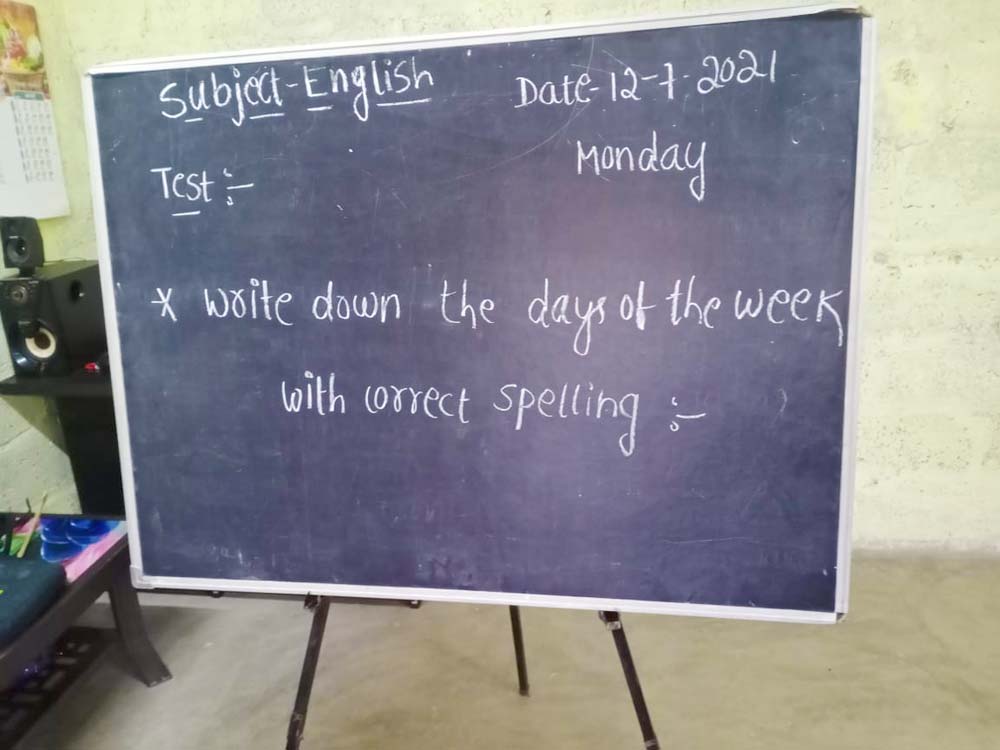 Subject-English
Date-12-7-2021
Monday
Test :-
* write down the days of the week
with correct spelling :-